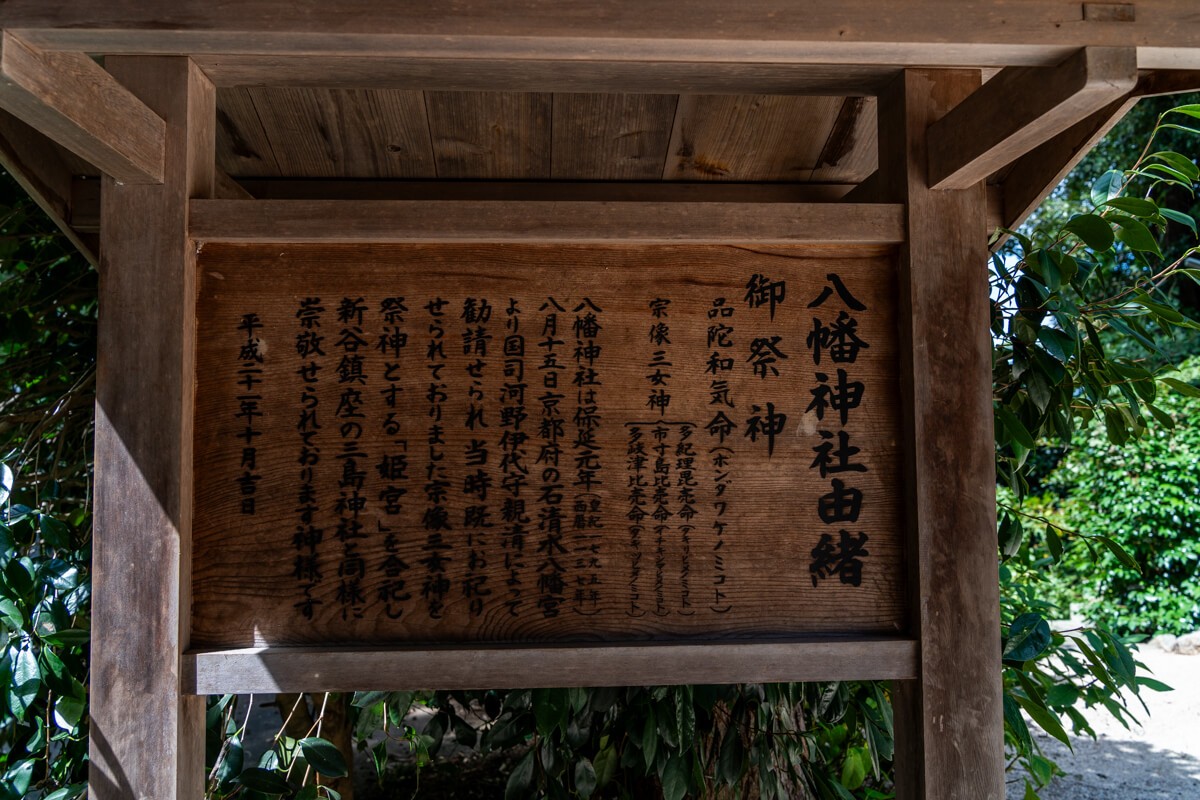 八幡神社由緒
御祭神
品陀和気命(ホンダワケノミコト)
宗像三女神
多紀理毘売命(タキリビメノミコト)
市寸島比売命(イチキシマヒメノミコト)
多岐津比売命(タキツヒメノミコト)
八幡神社は保延元年(皇紀一七九五年)(西暦一一三七年)
八月十五日京都府の石清水八幡宮
より国司河野伊代守親清によって
勧請せられ当時既にお祀り
せられておりました宗像三女神を
祭神とする「姫宮」を合祀し
新谷鎮座の三島神社と同様に
崇敬せられております神様です
平成二十一年十月吉日